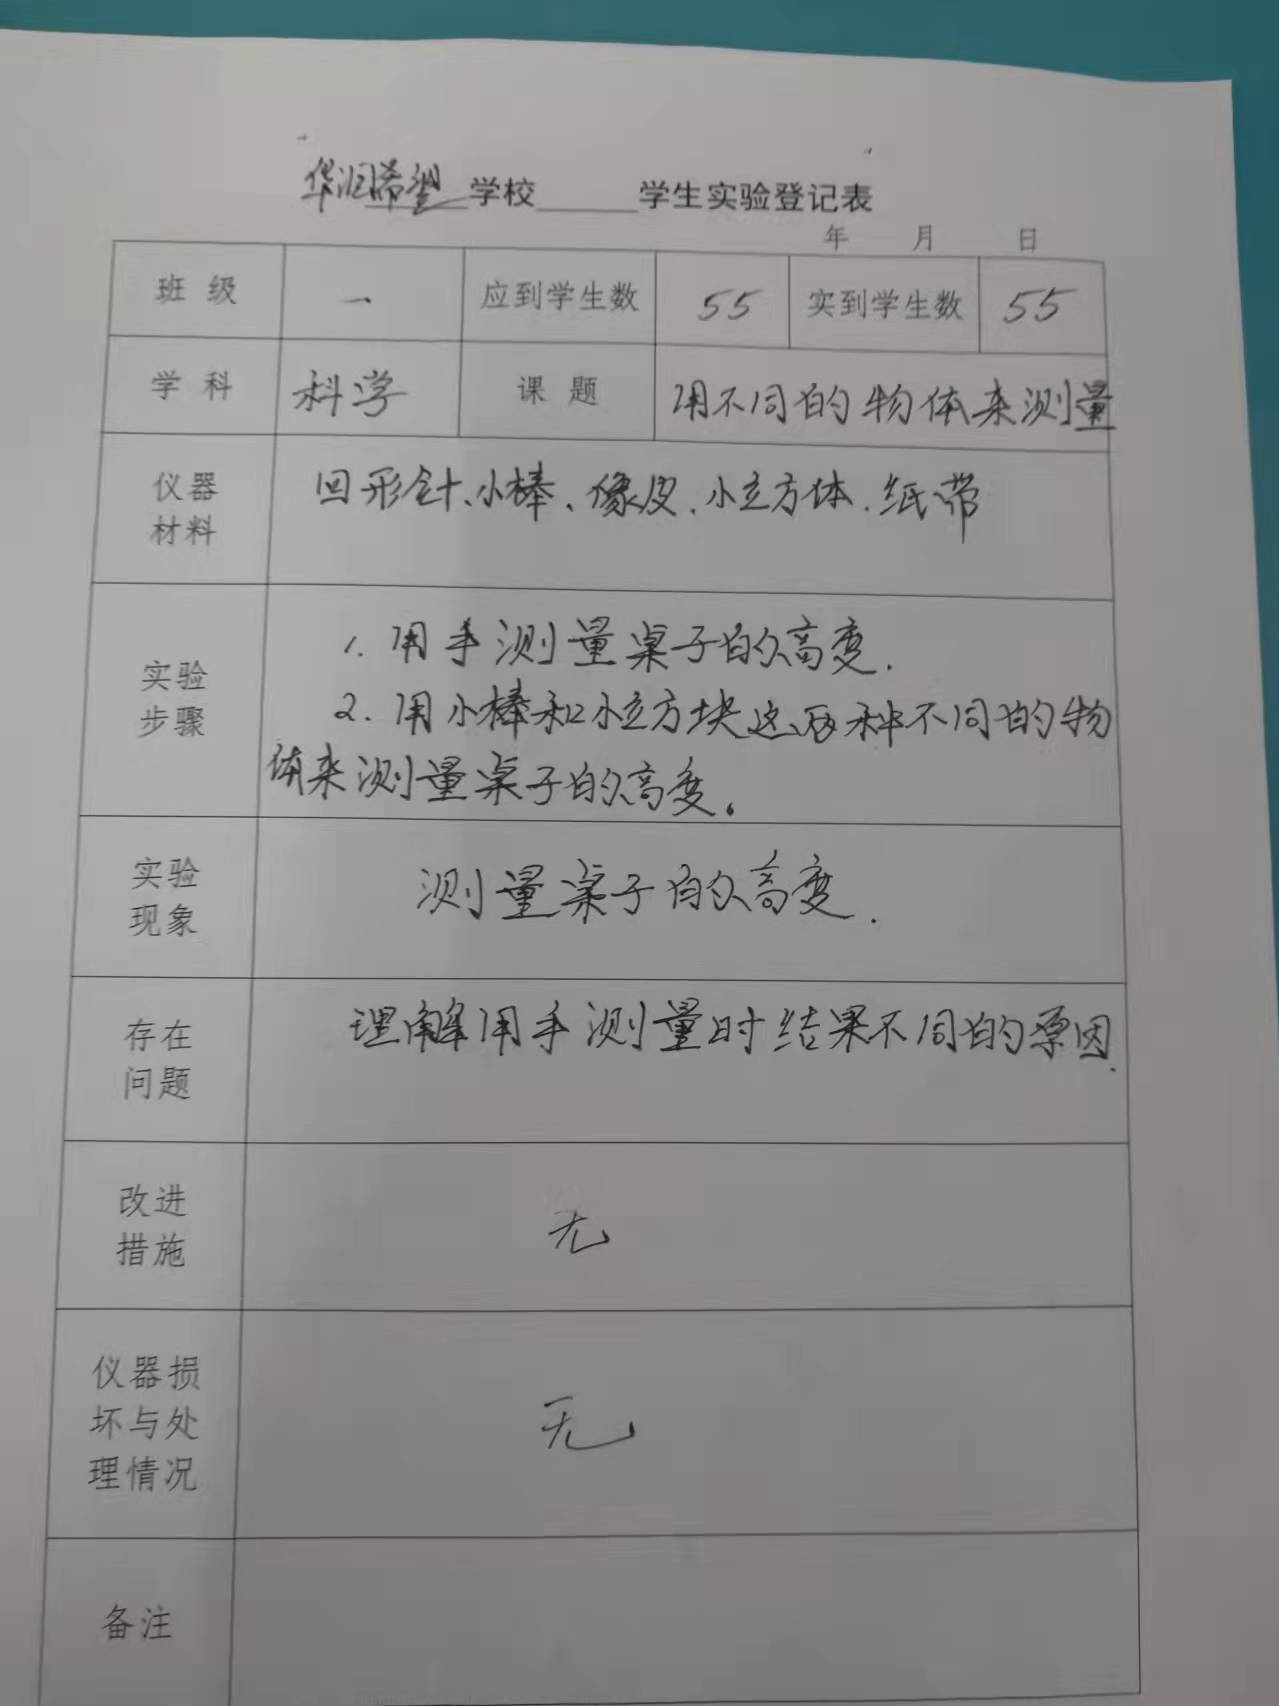 华润希望学校______学生实验登记表
年 月 日
班 级 一 应到学生数 55 实到学生数 55
学 科 科学 课 题 用不同的物体来测量
仪器
材料
回形针、小棒、像皮、小立方体、纸带
实验
步骤
1. 用手测量桌子的高度.
2. 用小棒和小立方块这两种不同的物
体来测量桌子的高度。
实验
现象
测量桌子的高度.
存在
问题
理解用手测量时结果不同的原因.
改进
措施
无
仪器损
坏与处
理情况
无
备注